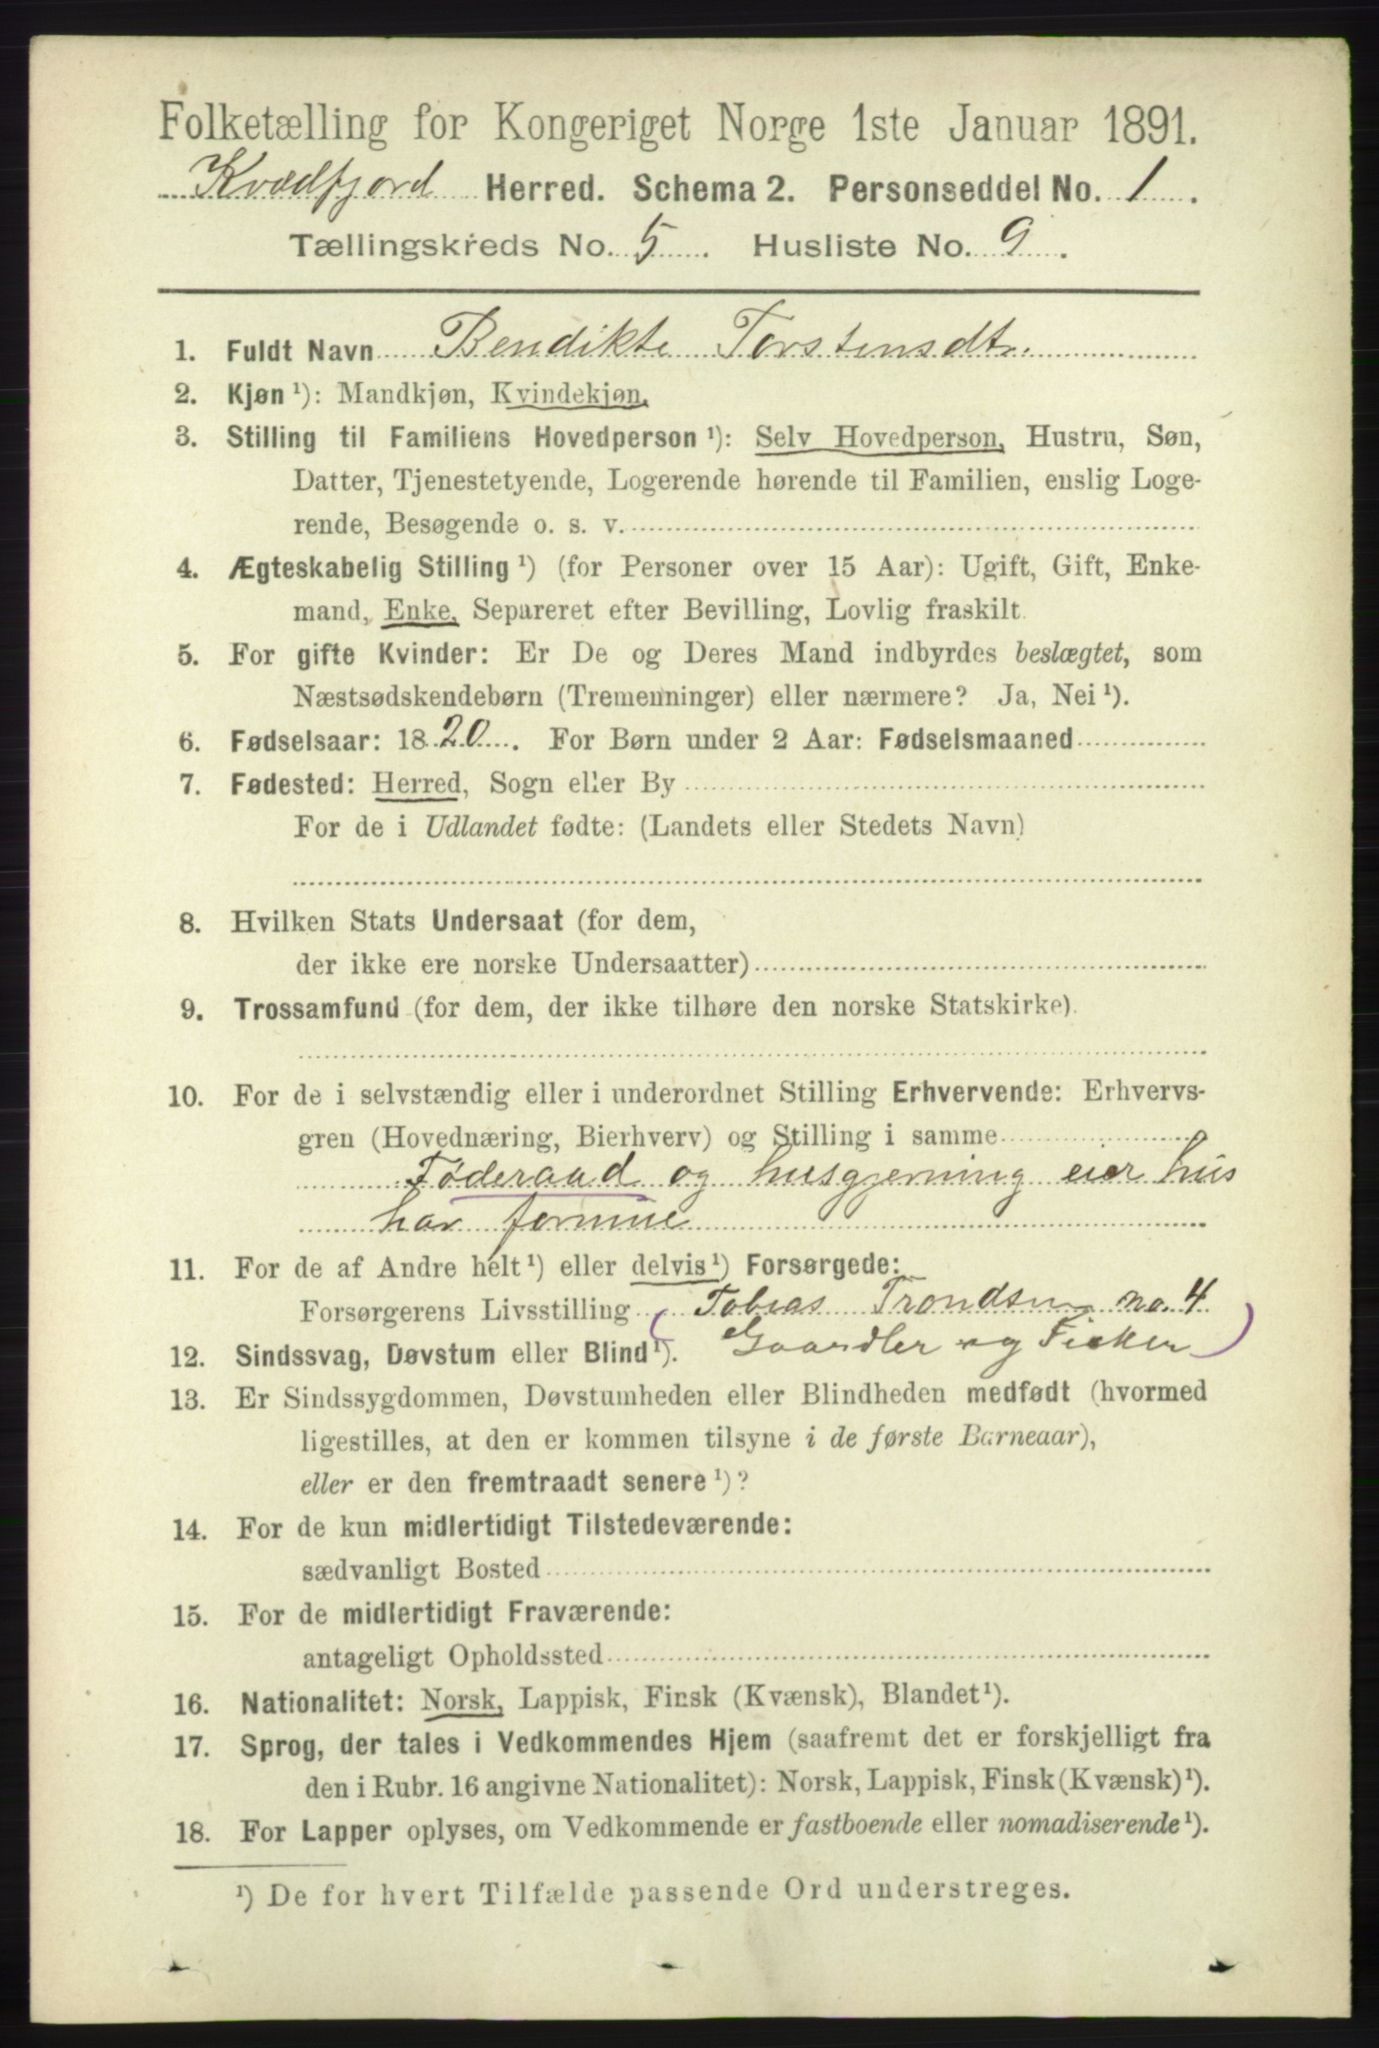 Folketælling for Kongeriget Norge 1ste Januar 1891.
Kvædfjord Herred. Schema 2. Personseddel No. 1.
Tællingskreds No. 5. Husliste No. 9.
1. Fuldt Navn Bendikte Torstensdtr.
2. Kjøn ¹): Mandkjøn, Kvindekjøn.
3. Stilling til Familiens Hovedperson ¹): Selv Hovedperson, Hustru, Søn,
Datter, Tjenestetyende, Logerende hørende til Familien, enslig Loge-
rende, Besøgende o. s. v.
4. Ægteskabelig Stilling ¹) (for Personer over 15 Aar): Ugift, Gift, Enke-
mand, Enke, Separeret efter Bevilling, Lovlig fraskilt.
5. For gifte Kvinder: Er De og Deres Mand indbyrdes beslægtet, som
Næstsødskendebørn (Tremenninger) eller nærmere? Ja, Nei ¹).
6. Fødselsaar: 1820. For Børn under 2 Aar: Fødselsmaaned
7. Fødested: Herred, Sogn eller By
For de i Udlandet fødte: (Landets eller Stedets Navn)
8. Hvilken Stats Undersaat (for dem,
der ikke ere norske Undersaatter)
9. Trossamfund (for dem, der ikke tilhøre den norske Statskirke).
10. For de i selvstændig eller i underordnet Stilling Erhvervende: Erhvervs-
gren (Hovednæring, Bierhverv) og Stilling i samme
Føderaad og husgjerning eier hus
har formue
11. For de af Andre helt ¹) eller delvis ¹) Forsørgede:
Forsørgerens Livsstilling Tobias Trondsen no. 4
12. Sindssvag, Døvstum eller Blind ¹). (Gaardbr og Fisker)
13. Er Sindssygdommen, Døvstumheden eller Blindheden medfødt (hvormed
ligestilles, at den er kommen tilsyne i de første Barneaar),
eller er den fremtraadt senere ¹)?
14. For de kun midlertidigt Tilstedeværende:
sædvanligt Bosted
15. For de midlertidigt Fraværende:
antageligt Opholdssted
16. Nationalitet: Norsk, Lappisk, Finsk (Kvænsk), Blandet ¹).
17. Sprog, der tales i Vedkommendes Hjem (saafremt det er forskjelligt fra
den i Rubr. 16 angivne Nationalitet): Norsk, Lappisk, Finsk (Kvænsk) ¹).
18. For Lapper oplyses, om Vedkommende er fastboende eller nomadiserende ¹).
¹) De for hvert Tilfælde passende Ord understreges.